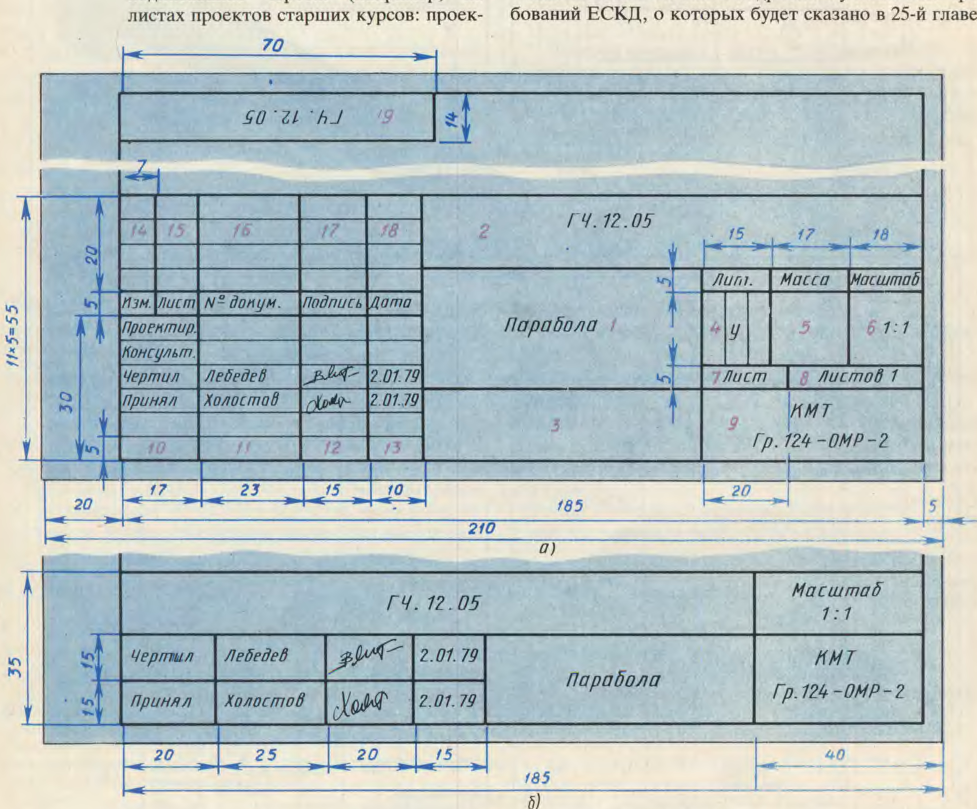 листах проектов старших курсов: проек-
бований ЕСКД, о которых будет сказано в 25-й главе
70
ГЧ. 12. 05 19
14
7
14 15 16 17 18
2 ГЧ.12.05
15 17 18
20
5
Лит. Масса Масштаб
11×5=55
5
Изм. Лист № докум. Подпись Дата
Парабола 1
4 у 5 6 1:1
Проектир.
Консульт.
Чертил Лебедев 2.01.79
5
7 Лист 8 Листов 1
30
Принял Холостов 2.01.79
3
9 КМТ
Гр.124-ОМР-2
5
10 11 12 13
17 23 15 10
20
20 185 5
210
а)
ГЧ.12.05
Масштаб
1:1
35
15
Чертил Лебедев 2.01.79
Парабола
КМТ
Гр.124-ОМР-2
15
Принял Холостов 2.01.79
20 25 20 15 40
185
б)